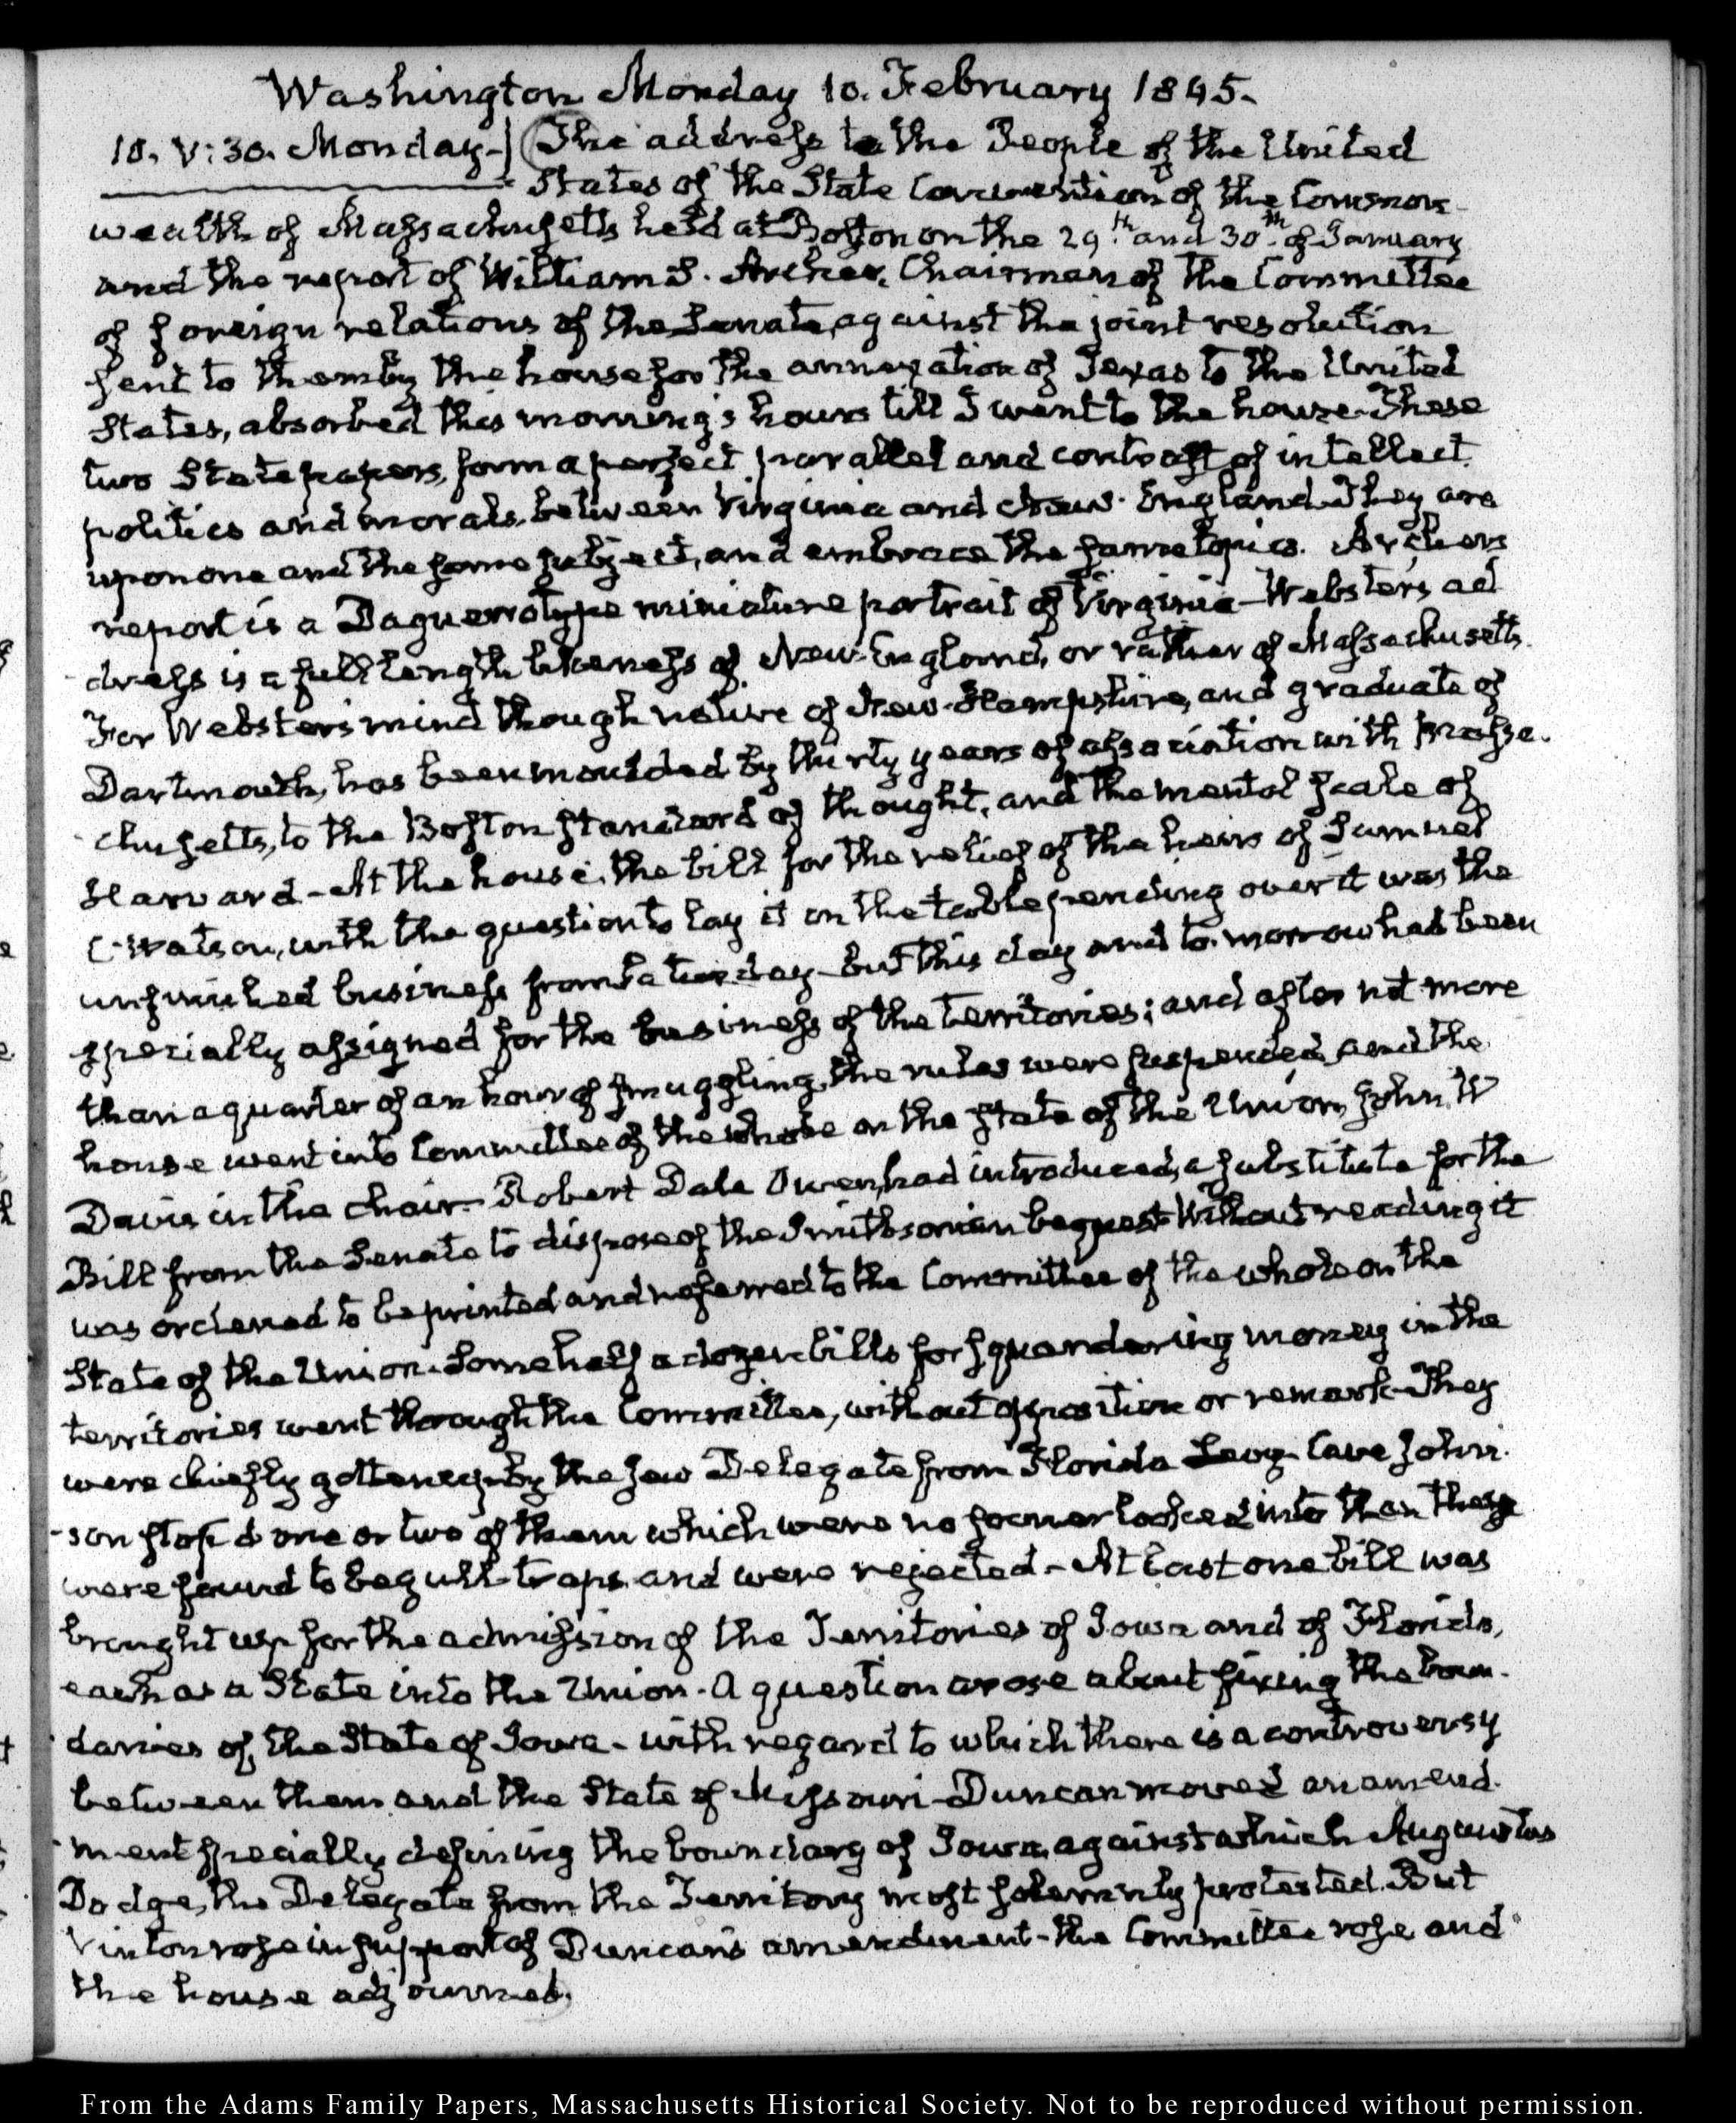 Washington Monday 10. February 1845.
10. V:30. Monday-] The address to the People of the United
States of the State Convention of the Common-
wealth of Massachusetts held at Boston on the 29th. and 30th. of January
and the report of William S. Archer, Chairman of the Committee
of foreign relations of the Senate, against the joint resolution
sent to them by the house for the annexation of Texas to the United
States, absorbed this morning's hours till I went to the house. These
two State papers, form a perfect parallel and contrast of intellect
politics and morals, between Virginia and New-England. They are
upon one and the same subject, and embrace the same topics. Archers
report is a Daguerrotype miniature portrait of Virginia - Websters ad
dress is a full length likeness of New-England, or rather of Massachusetts.
For Websters mind though native of New-Hampshire, and graduate of
Dartmouth, has been moulded by thirty years of association with Massa-
chusetts, to the Boston standard of thought, and the mental scale of
Harvard - At the house, the bill for the relief of the heirs of Samuel
C. Watson, with the question to lay it on the table pending over it was the
unfinished business from Saturday - but this day and to-morrow had been
specially assigned for the business of the Territories; and after not more
than a quarter of an hour of smuggling, the rules were suspended, and the
house went into Committee of the whole on the State of the Union, John W
Davis in the chair. Robert Dale Owen, had introduced, a substitute for the
Bill from the Senate to dispose of the Smithsonian bequest. Without reading it
was ordered to be printed and referred to the Committee of the whole on the
State of the Union. Some half a dozen bills for squandering money in the
territories went through the Committee, without opposition or remark - They
were chiefly gotten up by the Jew Delegate from Florida Levy. Cave John-
son stop'd one or two of them which were no sooner looked into than they
were found to be gull-traps, and were rejected - At last one bill was
brought up for the admission of the Territories of Iowa and of Florida,
each as a State into the Union. A question arose about fixing the boun-
daries of, the State of Iowa - with regard to which there is a controversy
between them and the State of Missouri - Duncan moved an amend-
ment specially defining the boundary of Iowa, against which Augustus
Dodge, the Delegate from the Territory most solemnly protested. But
Vinton rose in support of Duncan's amendment - the Committee rose and
the house adjourned.
From the Adams Family Papers, Massachusetts Historical Society. Not to be reproduced without permission.